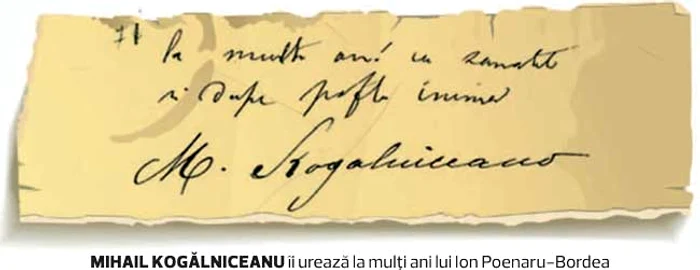 la multi ani cu sanatate
si dupe pofta inimei
M. Kogalniceano
MIHAIL KOGĂLNICEANU îi urează la mulţi ani lui Ion Poenaru-Bordea